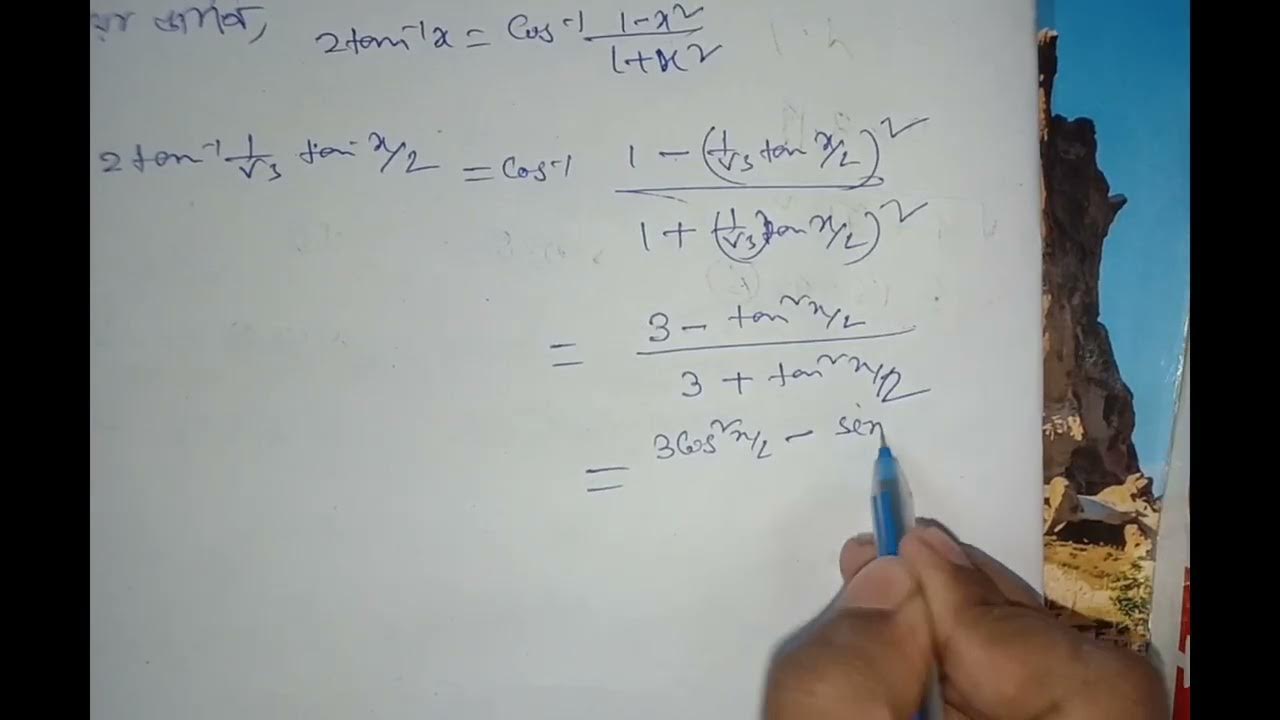 জানি, 2tan⁻¹x = Cos⁻¹ (1-x²)/(1+x²)
2tan⁻¹ 1/√3 tan x/2 = Cos⁻¹ (1 - (1/√3 tan x/2)²)/(1 + (1/√3 tan x/2)²)
= (3 - tan² x/2)/(3 + tan² x/2)
= 3cos² x/2 - sin